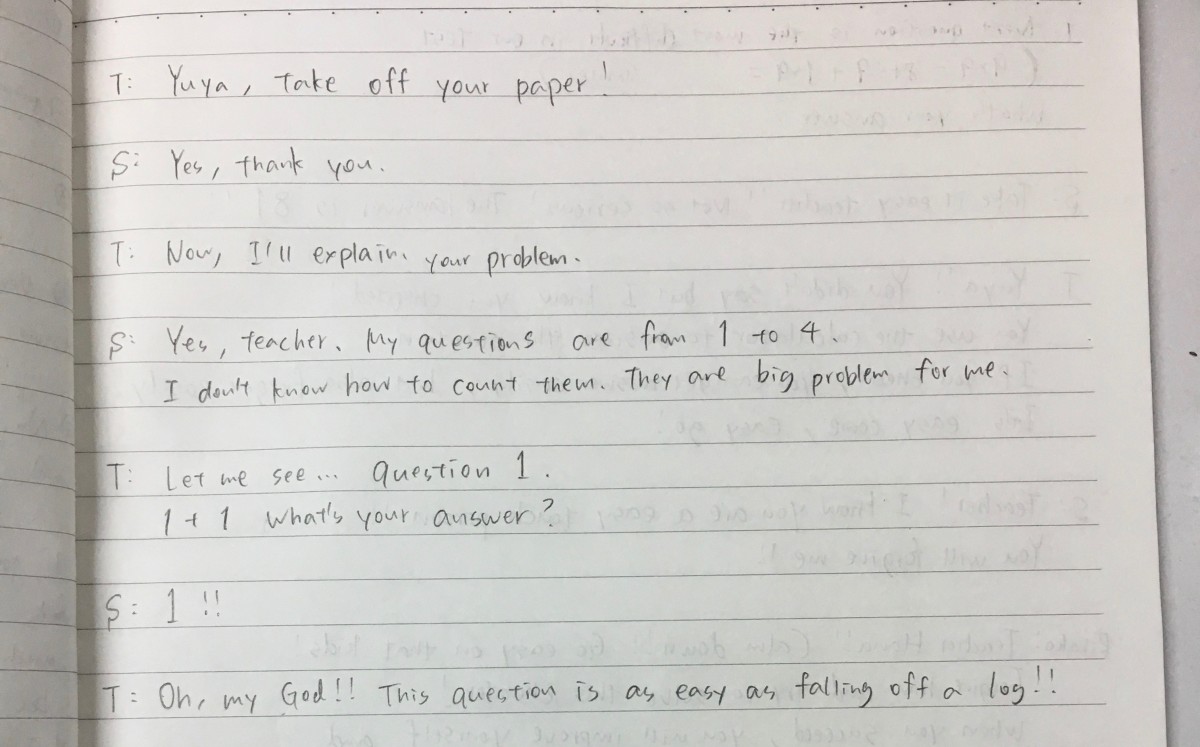 T: Yuya, take off your paper!
S: Yes, thank you.
T: Now, I'll explain your problem.
S: Yes, teacher. My questions are from 1 to 4.
I don't know how to count them. They are big problem for me.
T: Let me see... Question 1.
1 + 1 What's your answer?
S: 1 !!
T: Oh, my God!! This question is as easy as falling off a log!!